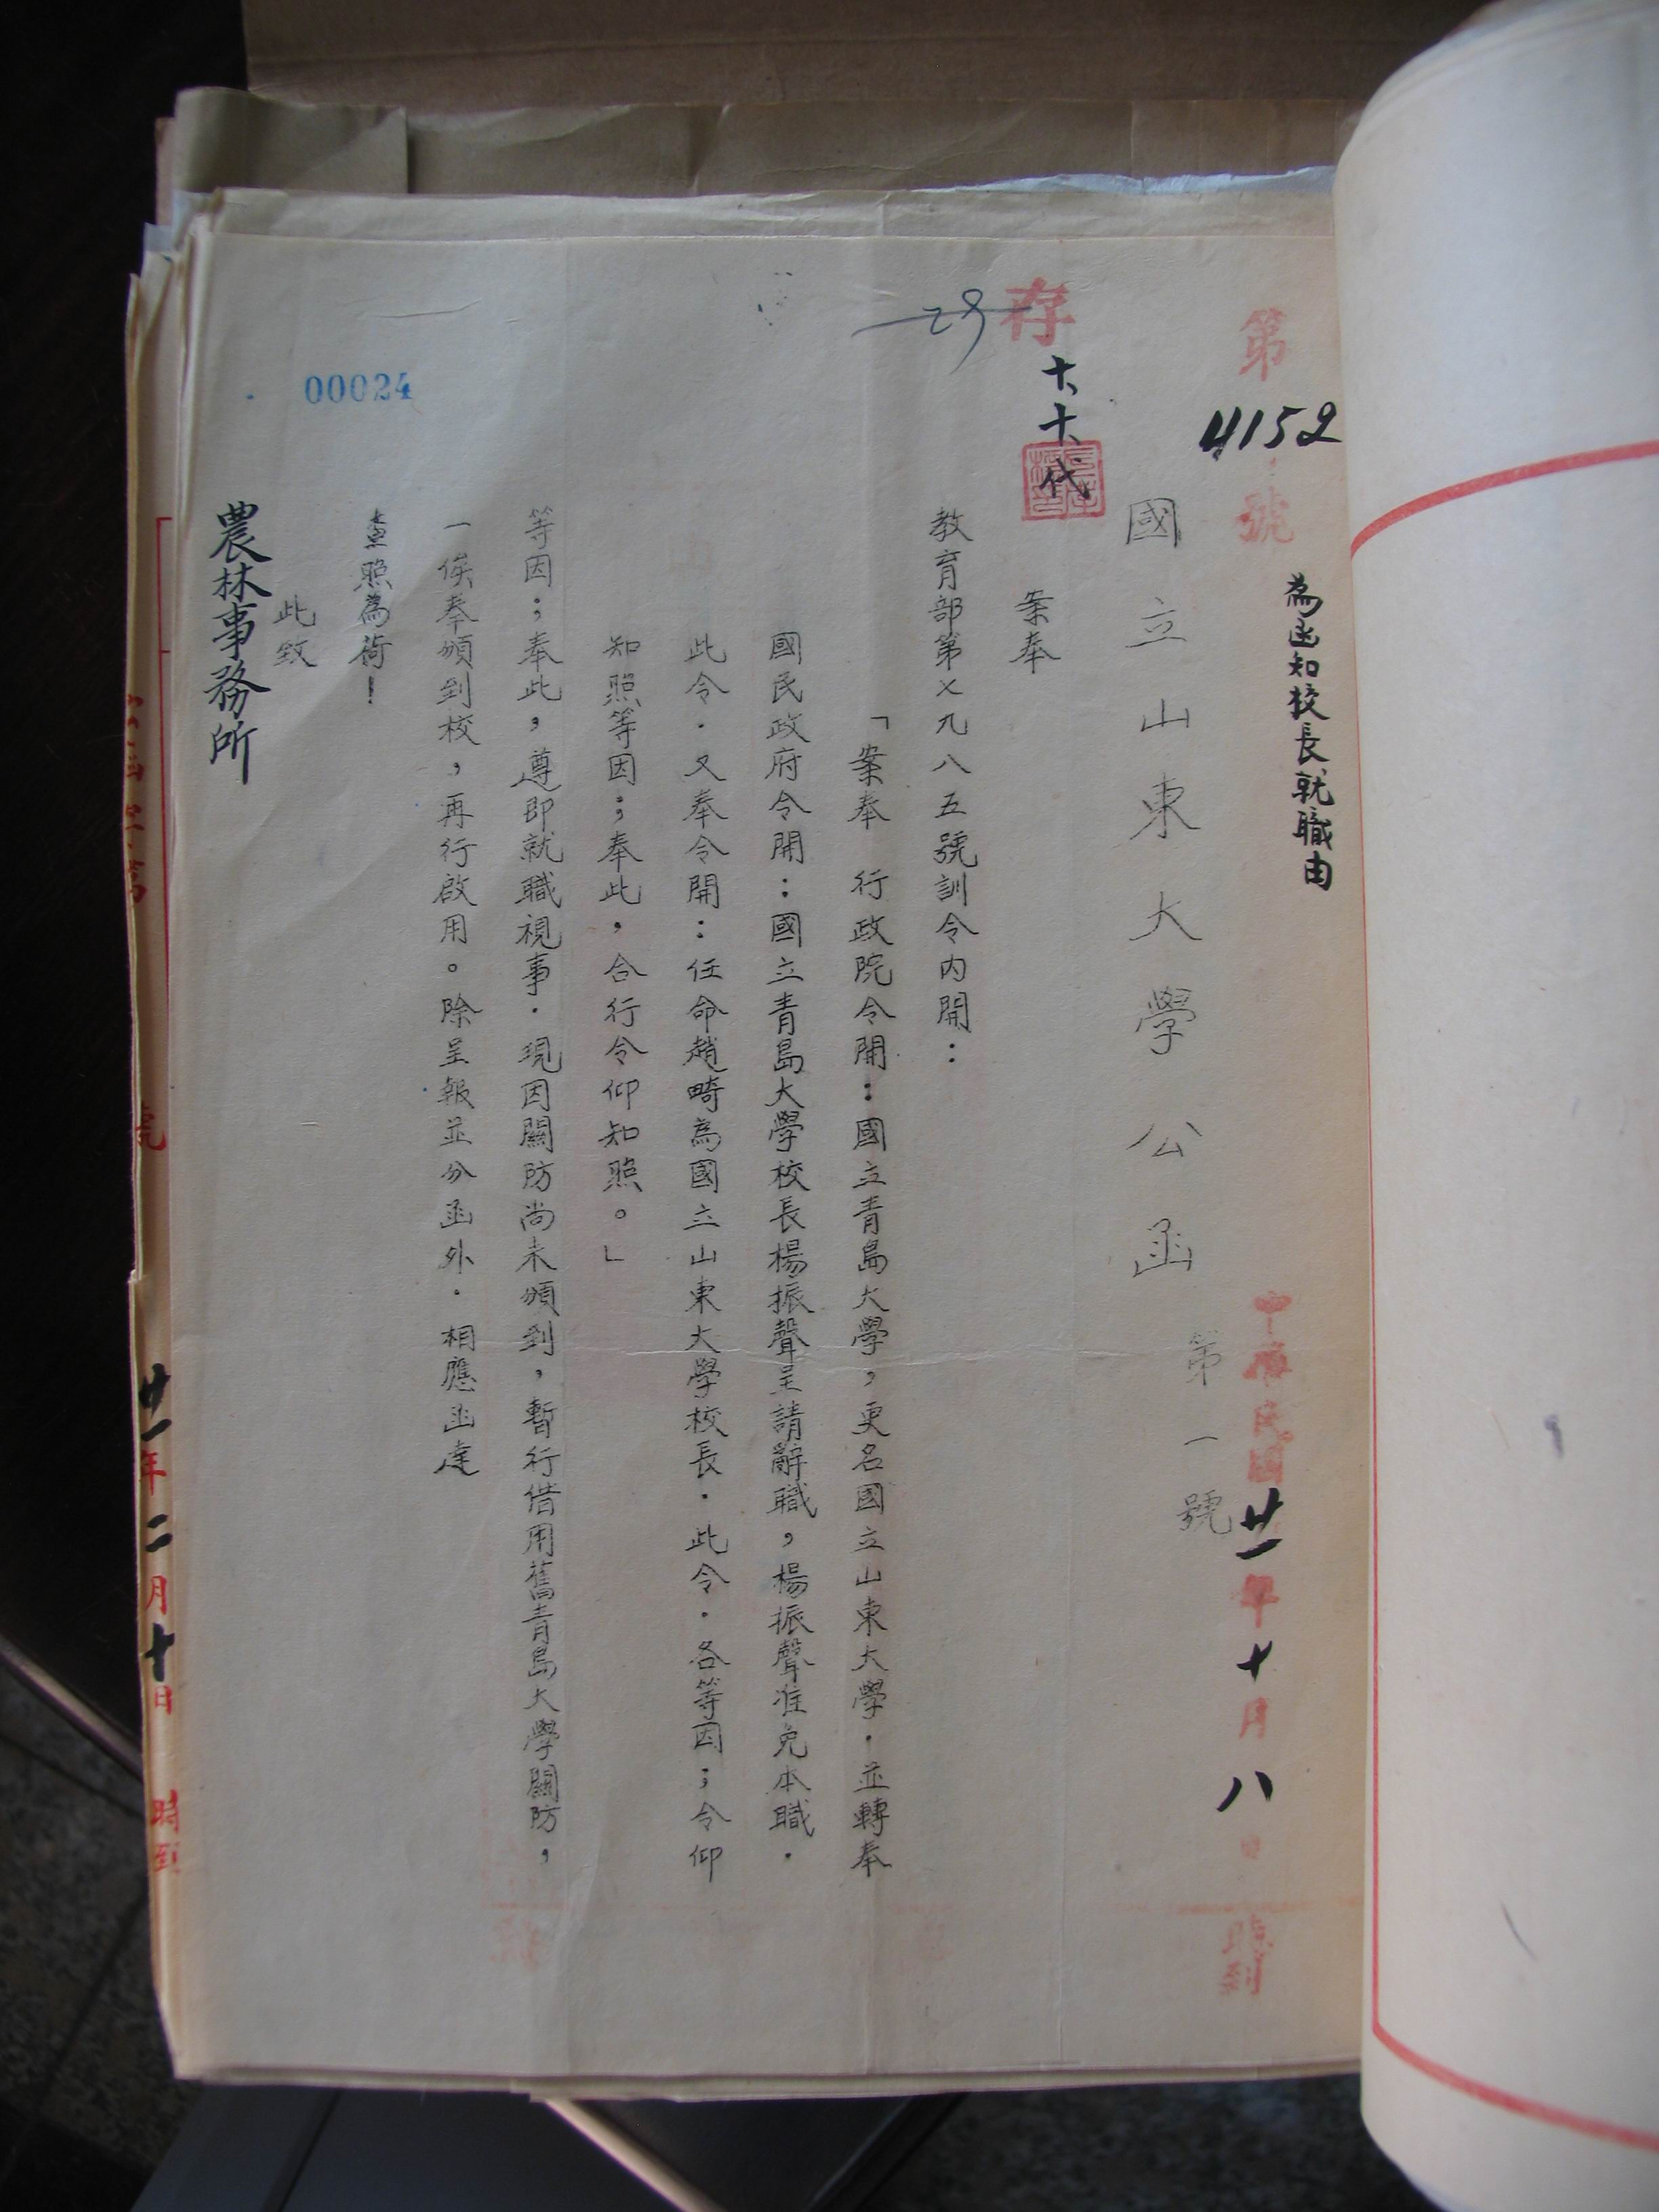 為函知校長就職由
第4152號
中華民國廿一年十月八日時到
國立山東大學公函
第一號
存
十、十、代
29
案奉
教育部第乂九八五號訓令內開：
「案奉　行政院令開：國立青島大學，更名國立山東大學．並轉奉
國民政府令開：國立青島大學校長楊振聲呈請辭職，楊振聲准免本職．
此令．又奉令開：任命趙畸為國立山東大學校長．此令．各等因；令仰
知照等因；奉此，合行令仰知照。」
等因；奉此，遵即就職視事．現因關防尚未頒到，暫行借用舊青島大學關防，
一俟奉頒到校，再行啟用。除呈報並分函外．相應函達
查照為荷！
此致
農林事務所
00024
廿一年二月十日　時到